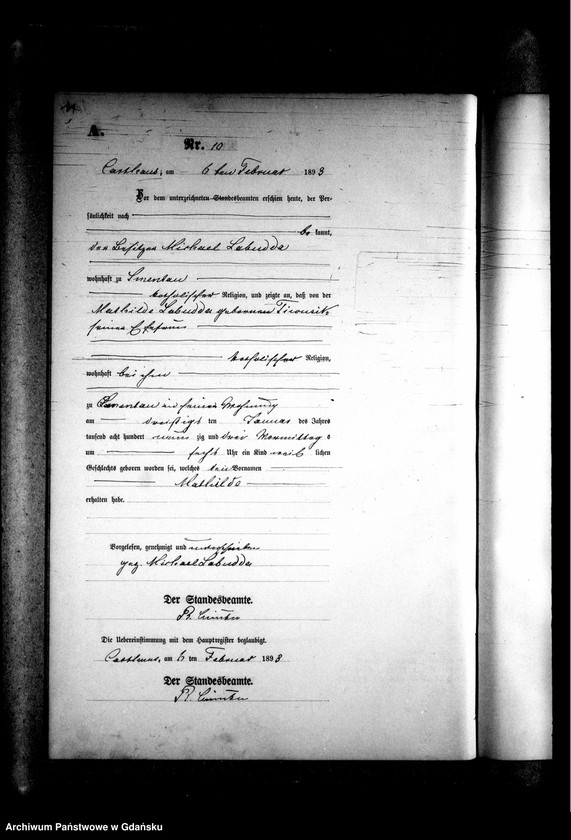 A.
Nr. 10
Carthaus, am 6ten Februar 1893
Vor dem unterzeichneten Standesbeamten erschien heute, der Per-
sönlichkeit nach
be kannt,
den Besitzer Michael Labudda
wohnhaft zu Smentau
katholischer Religion, und zeigte an, daß von der
Mathilde Labudda geborenen
seiner Ehefrau
katholischer Religion,
wohnhaft bei ihm
zu Smentau in seiner Wohnung
am dreißigsten Januar des Jahres
tausend acht hundert neunzig und drei Vormittags
um sechs Uhr ein Kind weiblichen
Geschlechts geboren worden sei, welches den Vornamen
Mathilde
erhalten habe.
Vorgelesen, genehmigt und unterschrieben
gez. Michael Labudda
Der Standesbeamte.
Die Uebereinstimmung mit dem Hauptregister beglaubigt.
Carthaus, am 6 ten Februar 1893
Der Standesbeamte.
Archiwum Państwowe w Gdańsku